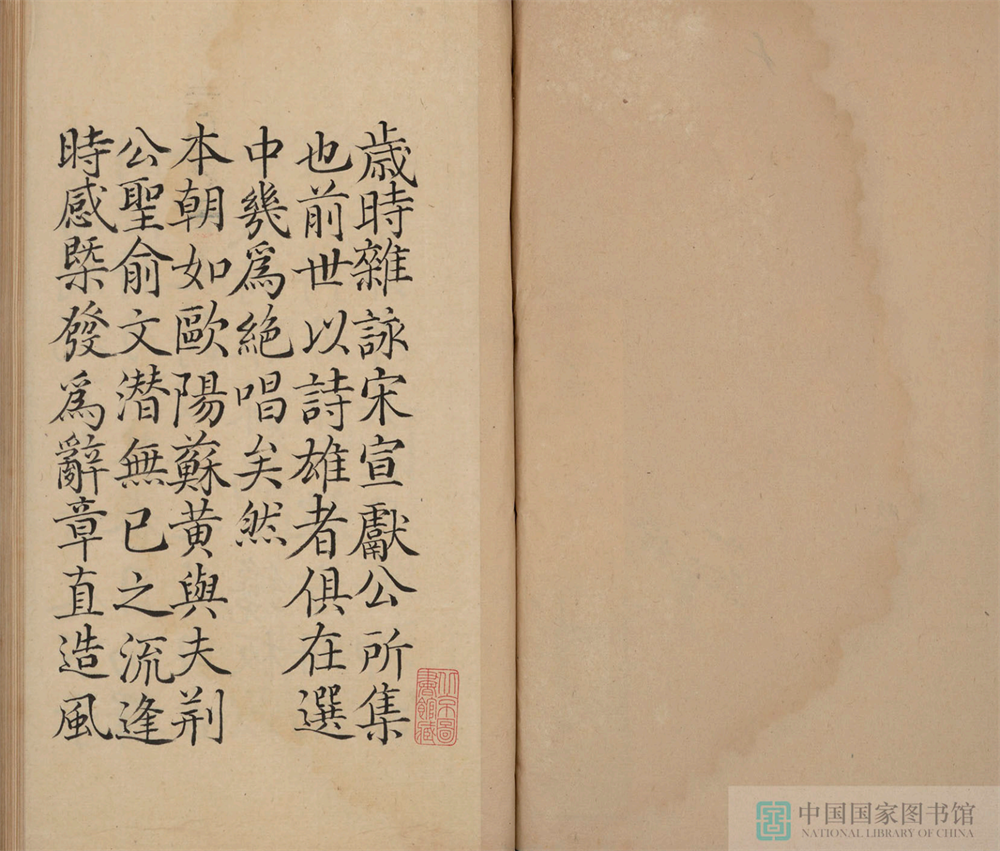 歳時雜詠宋宣獻公所集
也前世以詩雄者俱在選
中幾爲絶唱矣然
本朝如歐陽蘇黄與夫荆
公聖俞文潛無已之流逢
時感槩發爲辭章直造風
北京圖書館藏
中国国家图书馆
NATIONAL LIBRARY OF CHINA